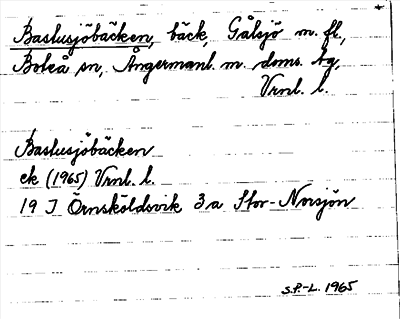 Bastusjöbäcken, bäck, Gålsjö m. fl.,
Boteå sn, Ångermanl. m. doms. hg,
Vrnl. l.
Bastusjöbäcken
ek (1965) Vrnl. l.
19 J Örnsköldsvik 3 a Stor-Norsjön
S.P-L. 1965